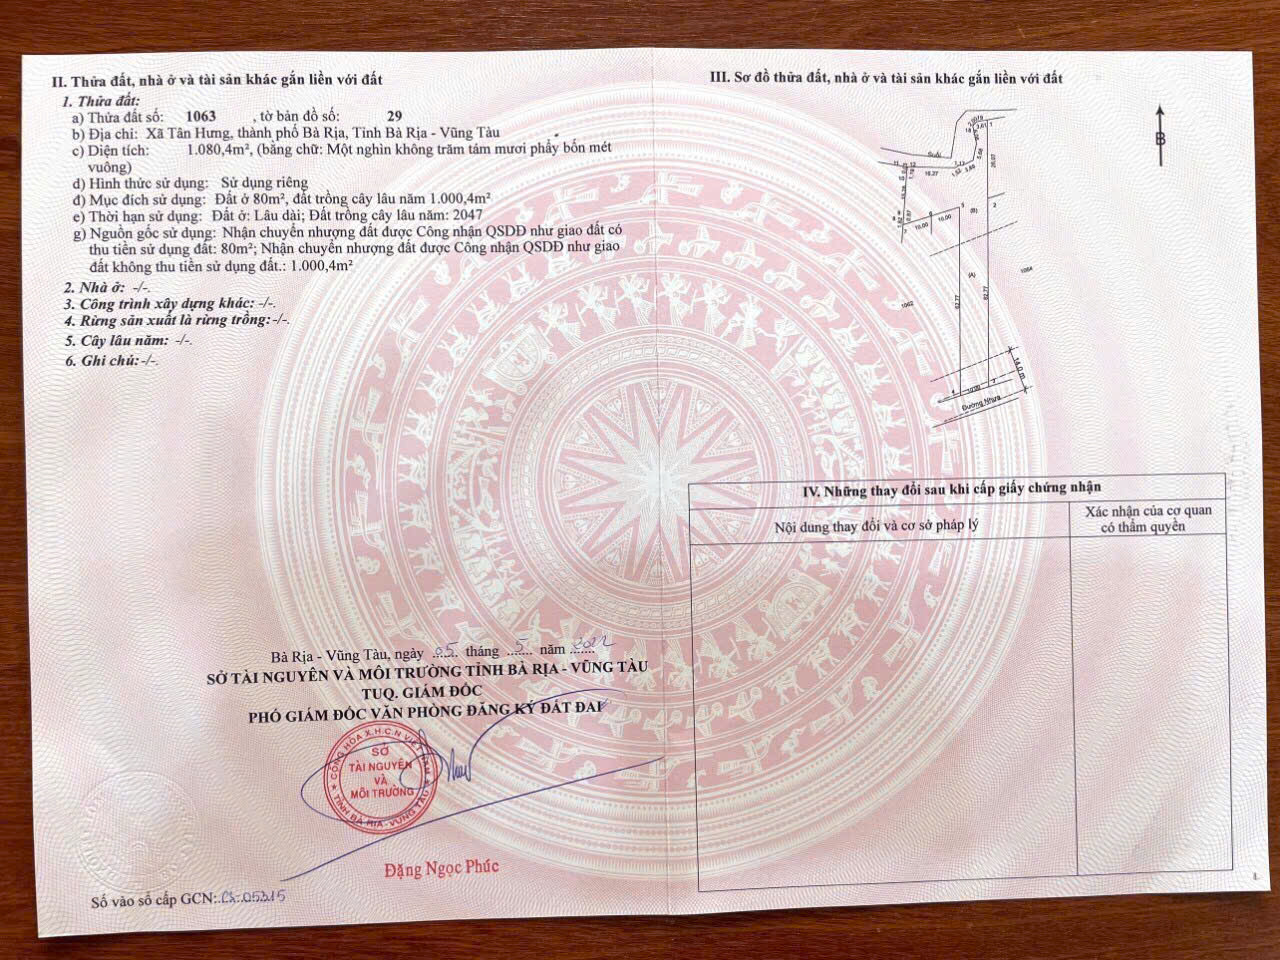 II. Thửa đất, nhà ở và tài sản khác gắn liền với đất
1. Thửa đất:
a) Thửa đất số: 1063 , tờ bản đồ số: 29
b) Địa chỉ: Xã Tân Hưng, thành phố Bà Rịa, Tỉnh Bà Rịa - Vũng Tàu
c) Diện tích: 1.080,4m², (bằng chữ: Một nghìn không trăm tám mươi phẩy bốn mét
vuông)
d) Hình thức sử dụng: Sử dụng riêng
đ) Mục đích sử dụng: Đất ở 80m², đất trồng cây lâu năm 1.000,4m²
e) Thời hạn sử dụng: Đất ở: Lâu dài; Đất trồng cây lâu năm: 2047
g) Nguồn gốc sử dụng: Nhận chuyển nhượng đất được Công nhận QSDĐ như giao đất có
thu tiền sử dụng đất: 80m²; Nhận chuyển nhượng đất được Công nhận QSDĐ như giao
đất không thu tiền sử dụng đất.: 1.000,4m²
2. Nhà ở: -/-.
3. Công trình xây dựng khác: -/-.
4. Rừng sản xuất là rừng trồng:-/-.
5. Cây lâu năm: -/-.
6. Ghi chú:-/-.
Bà Rịa - Vũng Tàu, ngày 05 tháng 5 năm 2022
SỞ TÀI NGUYÊN VÀ MÔI TRƯỜNG TỈNH BÀ RỊA - VŨNG TÀU
TUQ. GIÁM ĐỐC
PHÓ GIÁM ĐỐC VĂN PHÒNG ĐĂNG KÝ ĐẤT ĐAI
CỘNG HÒA X.H.C.N VIỆT NAM
SỞ
TÀI NGUYÊN
VÀ
MÔI TRƯỜNG
TỈNH BÀ RỊA - VŨNG TÀU
Đặng Ngọc Phúc
Số vào sổ cấp GCN:
III. Sơ đồ thửa đất, nhà ở và tài sản khác gắn liền với đất
B
Suối
16.27
26.07
10.00
10.00
(B)
(A)
1064
1062
62.77
62.77
14.0 m
10.00
Đường Nhựa
IV. Những thay đổi sau khi cấp giấy chứng nhận
Nội dung thay đổi và cơ sở pháp lý
Xác nhận của cơ quan
có thẩm quyền